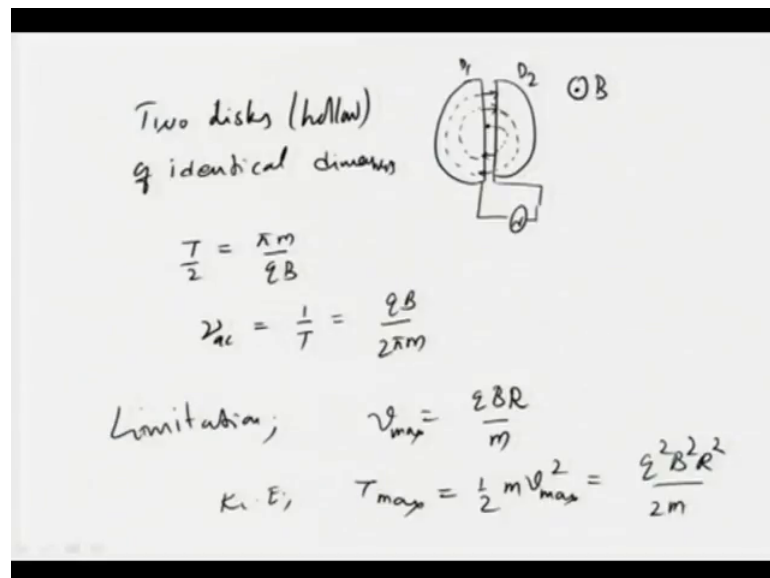 D1 D2
⊙B
Two disks (hollow)
of identical dimensions
T/2 = πm/qB
ν_ac = 1/T = qB/2πm
Limitation; v_max = qBR/m
K.E; T_max = 1/2 m v_max^2 = q^2B^2R^2/2m